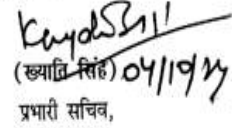 (ख्याति सिंह) 04/10/24
प्रभारी सचिव,